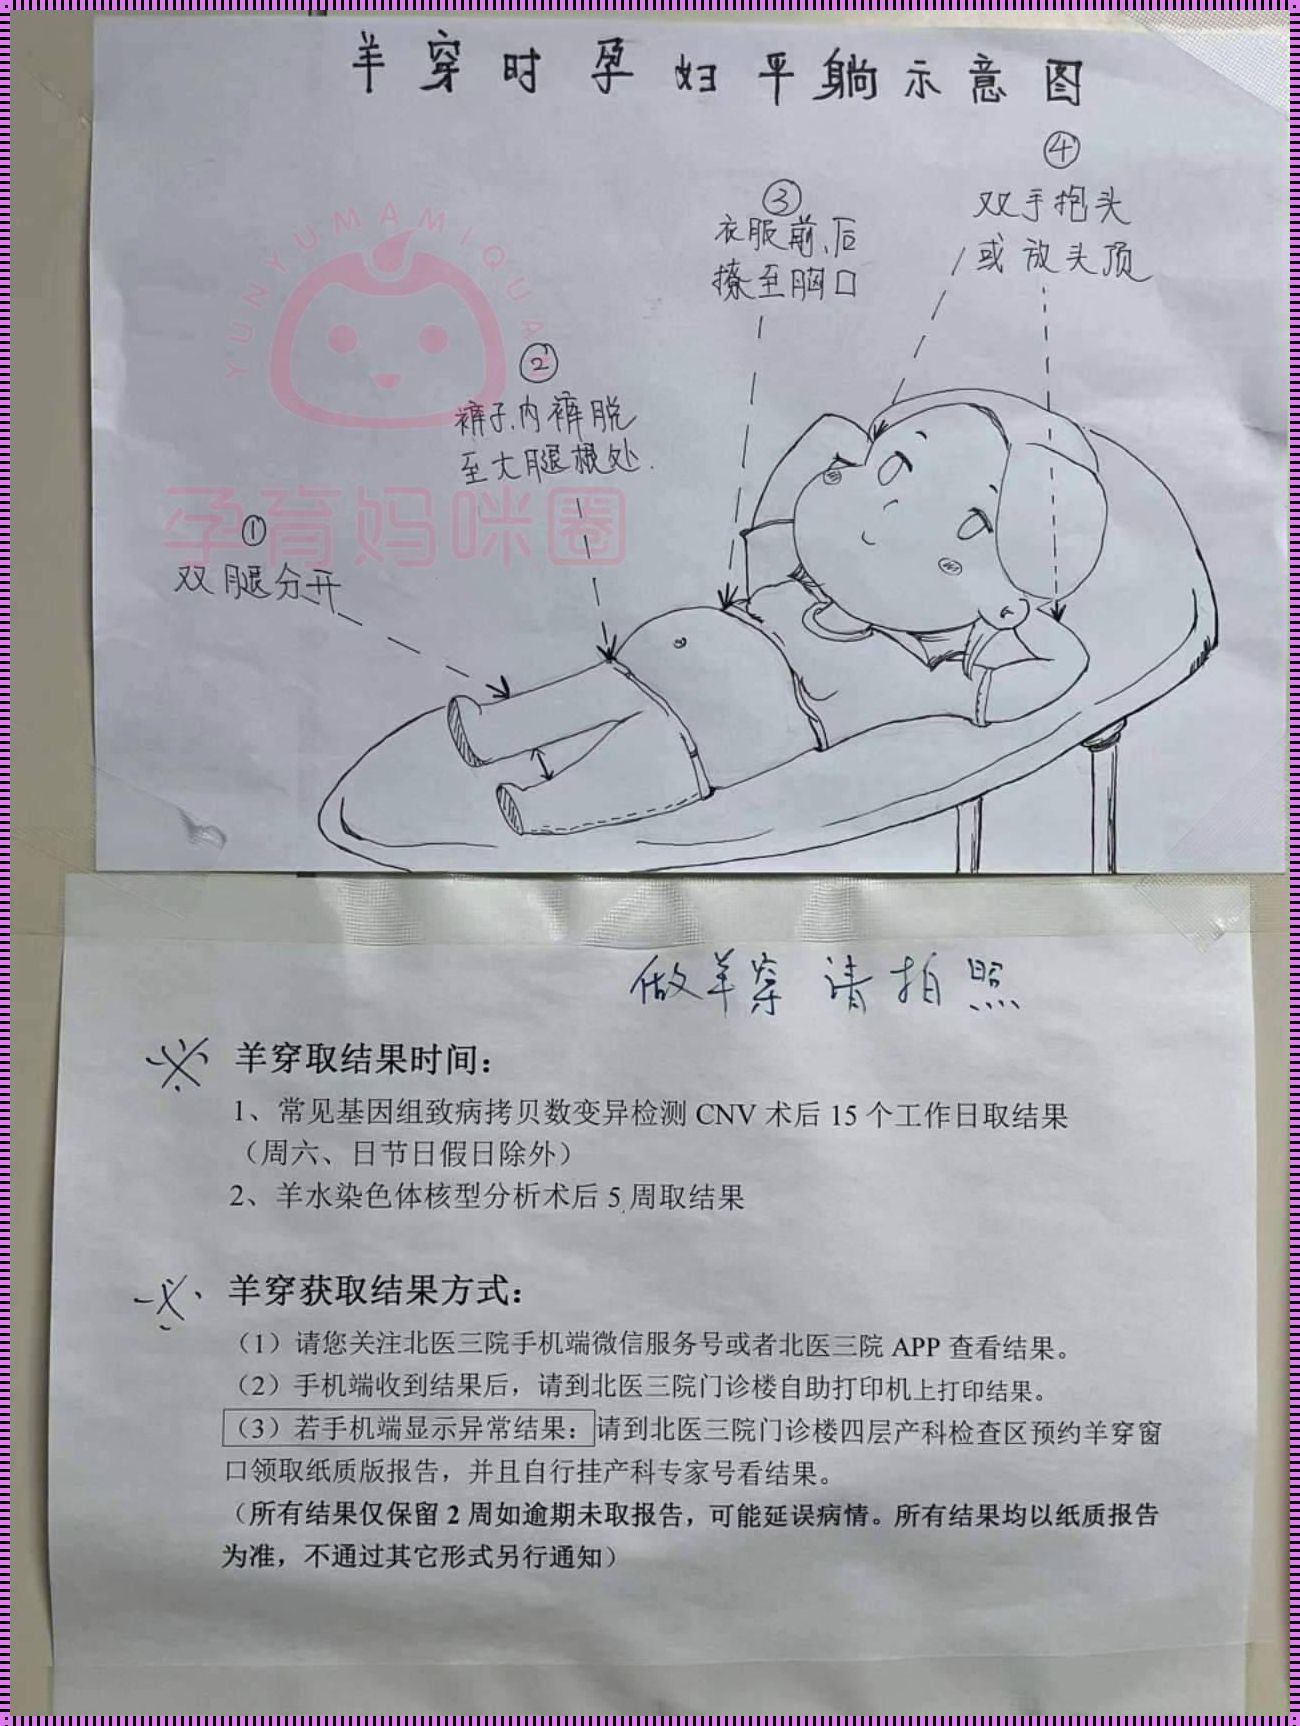 羊穿时孕妇平躺示意图
④
双手抱头
或放头顶
③
衣服前、后
撩至胸口
YUNYUMAMIQUAN
②
裤子、内裤脱
至大腿根处.
孕育妈咪圈
①
双腿分开
做羊穿 请拍照
羊穿取结果时间：
1、常见基因组致病拷贝数变异检测 CNV 术后 15 个工作日取结果
（周六、日节日假日除外）
2、羊水染色体核型分析术后 5 周取结果
羊穿获取结果方式：
（1）请您关注北医三院手机端微信服务号或者北医三院 APP 查看结果。
（2）手机端收到结果后，请到北医三院门诊楼自助打印机上打印结果。
（3）若手机端显示异常结果：请到北医三院门诊楼四层产科检查区预约羊穿窗
口领取纸质版报告，并且自行挂产科专家号看结果。
（所有结果仅保留 2 周如逾期未取报告，可能延误病情。所有结果均以纸质报告
为准，不通过其它形式另行通知）